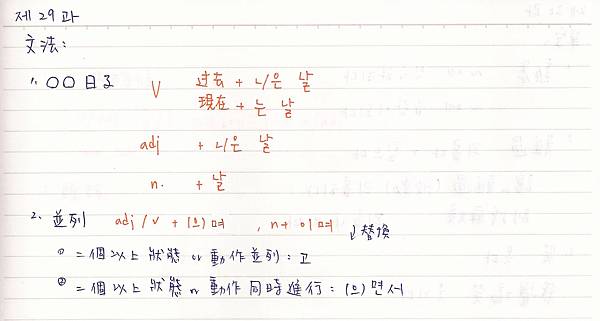 제 29 과
文法:
1. ○○日子 V 过去 + ㄴ/은 날
現在 + 는 날
adj + ㄴ/은 날
n. + 날
2. 並列 adj / v + (으)며 , n + 이며 ↓替換
① 二個以上狀態 or 動作並列: 고
② 二個以上狀態 or 動作同時進行: (으)면서